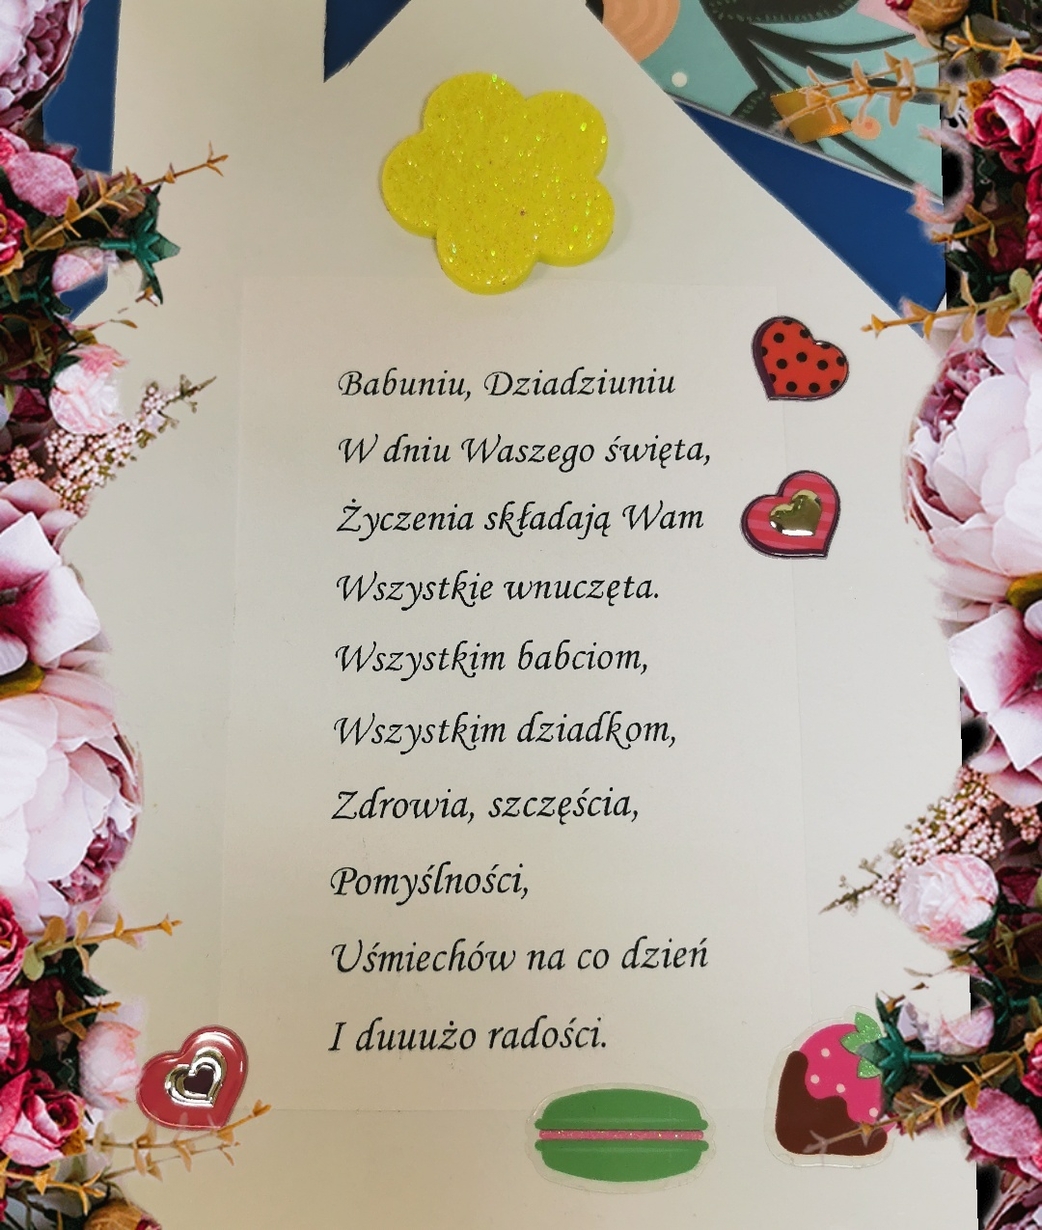 Babuniu, Dziadziuniu
W dniu Waszego święta,
Życzenia składają Wam
Wszystkie wnuczęta.
Wszystkim babciom,
Wszystkim dziadkom,
Zdrowia, szczęścia,
Pomyślności,
Uśmiechów na co dzień
I duuużo radości.